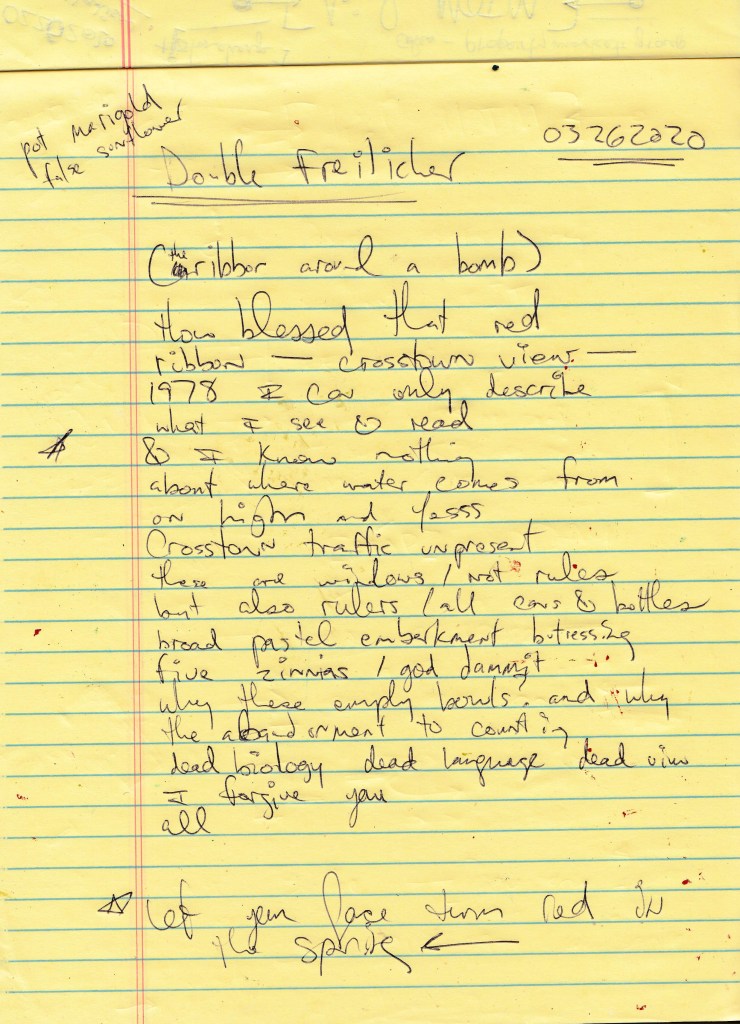 pot marigold
false sunflower
03262020
Double Freilicher
(the ribbon around a bomb)
How blessed that red
ribbon — crosstown view —
1978 I can only describe
what I see & read
& I know nothing
about where water comes from
on high and yesss
Crosstown traffic unpresent
these are windows / not rules
but also rulers / all cans & bottles
broad pastel embarkment butressing
five zinnias / god dammit
why these empty bowls? and why
the abandonment to counting
dead biology dead language dead view
I forgive you
all
let your face turn red in
the spring